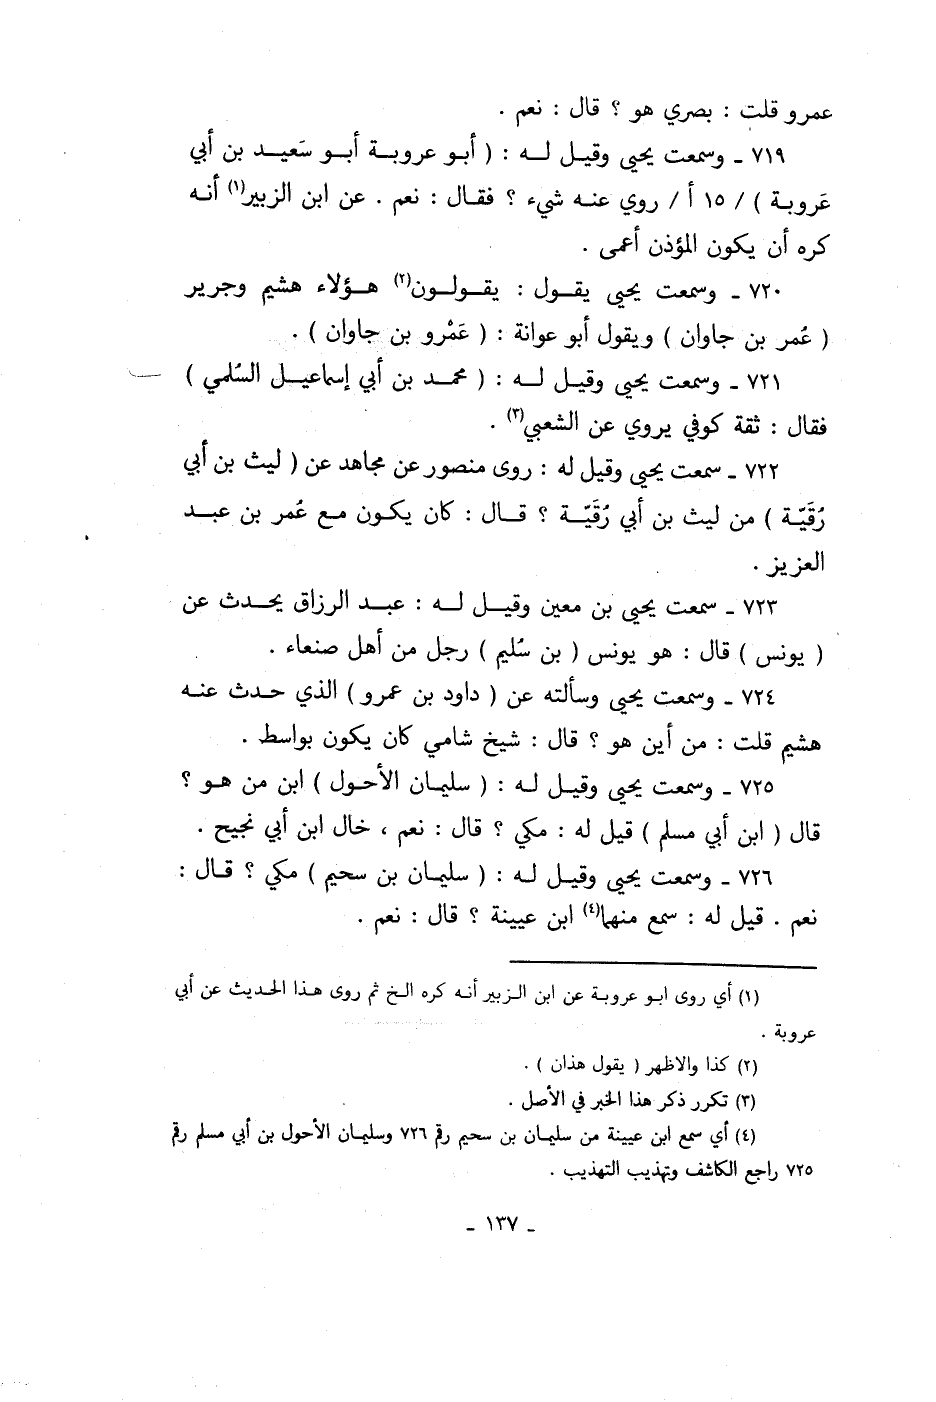 عمرو قلت : بصري هو ؟ قال : نعم .
٧١٩ ـ وسمعت يحيى وقيل له : ( أبو عروبة أبو سَعيد بن أبي
عَروبة ) / ١٥ أ / روي عنه شيء ؟ فقال : نعم . عن ابن الزبير(١) أنه
كره أن يكون المؤذن أعمى .
٧٢٠ ـ وسمعت يحيى يقول : يقولون(٢) هؤلاء هشيم وجرير
( عُمر بن جاوان ) ويقول أبو عوانة : ( عَمْرو بن جاوان ) .
٧٢١ ـ وسمعت يحيى وقيل له : ( محمد بن أبي إسماعيل السُلمي )
فقال : ثقة كوفي يروي عن الشعبي(٣) .
٧٢٢ ـ سمعت يحيى وقيل له : روى منصور عن مجاهد عن ( ليث بن أبي
رُقَيّة ) من ليث بن أبي رُقَيّة ؟ قال : كان يكون مع عُمر بن عبد
العزيز .
٧٢٣ ـ سمعت يحيى بن معين وقيل له : عبد الرزاق يحدث عن
( يونس ) قال : هو يونس ( بن سُليم ) رجل من أهل صنعاء .
٧٢٤ ـ وسمعت يحيى وسألته عن ( داود بن عمرو ) الذي حدث عنه
هشيم قلت : من أين هو ؟ قال : شيخ شامي كان يكون بواسط .
٧٢٥ ـ وسمعت يحيى وقيل له : ( سليمان الأحول ) ابن من هو ؟
قال ( ابن أبي مسلم ) قيل له : مكي ؟ قال : نعم ، خال ابن أبي نجيح .
٧٢٦ ـ وسمعت يحيى وقيل له : ( سليمان بن سحيم ) مكي ؟ قال :
نعم . قيل له : سمع منهما(٤) ابن عيينة ؟ قال : نعم .
(١) أي روى ابو عروبة عن ابن الزبير أنه كره الخ ثم روى هذا الحديث عن أبي
عروبة .
(٢) كذا والاظهر ( يقول هذان ) .
(٣) تكرر ذكر هذا الخبر في الأصل .
(٤) أي سمع ابن عيينة من سليمان بن سحيم رقم ٧٢٦ وسليمان الأحول بن أبي مسلم رقم
٧٢٥ راجع الكاشف وتهذيب التهذيب .
ـ ١٣٧ ـ